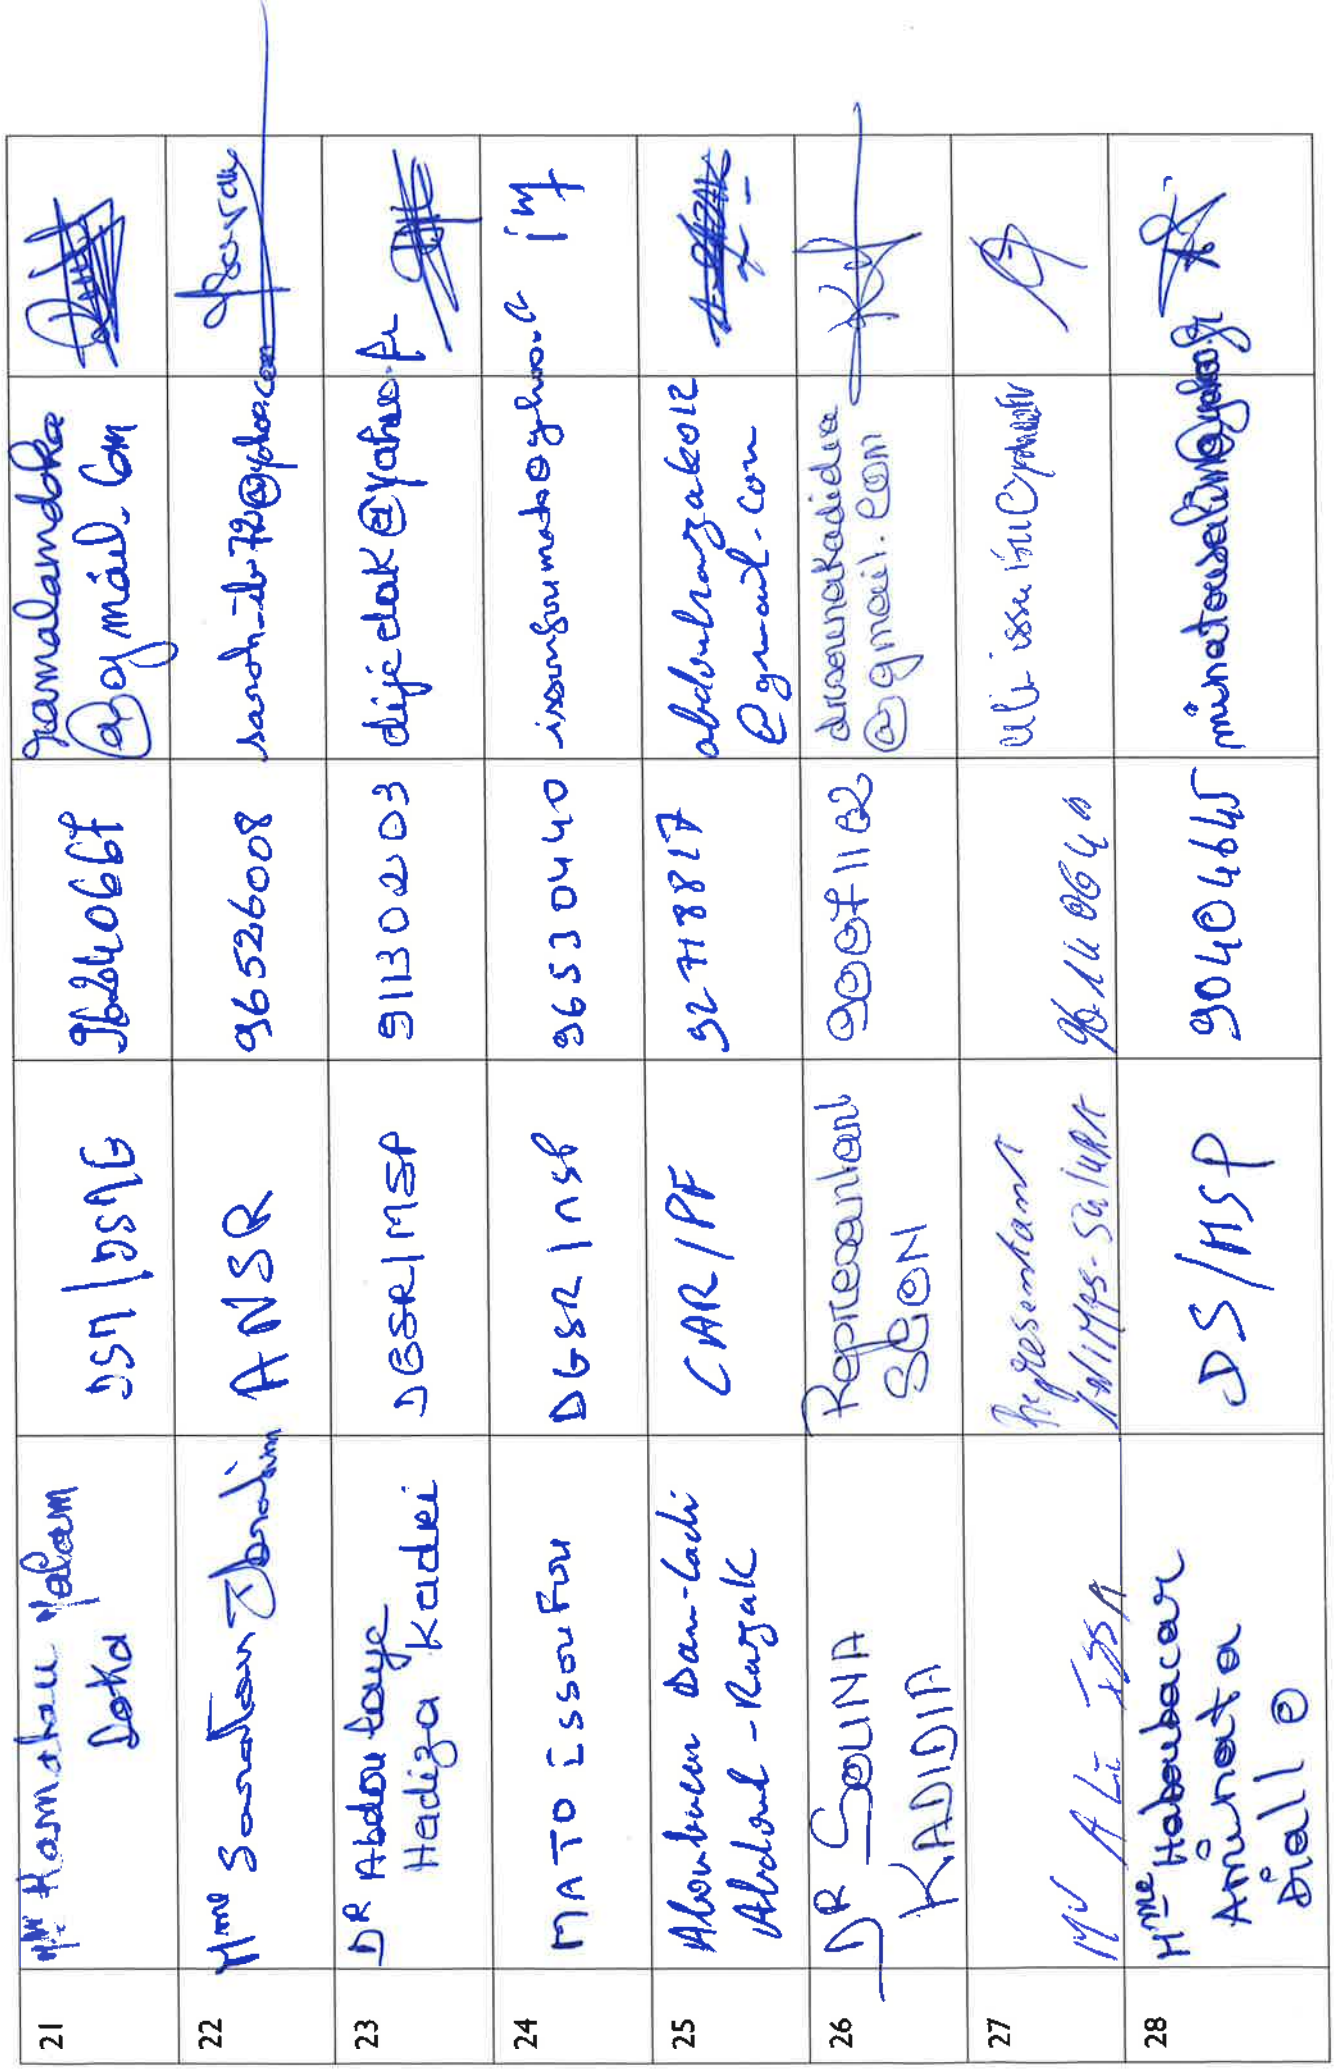 21
Mme Hamsatou Malam
Doka
DSM/DSNG
96240667
ramalamdoka
@gmail.com
22
Mme Saratou Ibrahim
ANSR
96526008
23
DR Abdoulaye
Hadiza Kadri
DGSR/MSP
91130203
dijedak@yahoo.fr
24
MATO ISSOUFOU
DGSR/MSP
96530440
issoufoumato@yhoo.
25
Aboubacar Dan-Ladi
Abdoul-Razak
CAR/PF
92718817
abdoulrazak012
@gmail.com
26
DR SOUNA
KADIDIA
Representant
SGON
90071102
drsounakadidia
@gmail.com
27
Mr ALI ISSA
Representant
96 14 06 40
ali-issa
28
Mme Haboubacar
Aminata
Diallo
DS/MSP
90404645